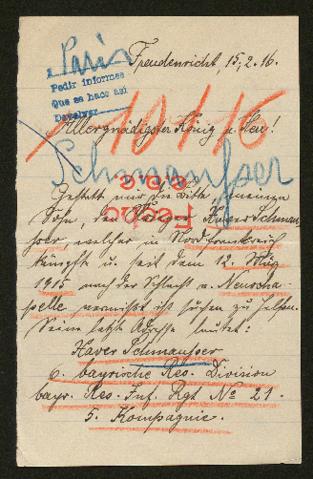 Paris
Freudenricht, 15, 2. 16.
Pedir informes
que se hace así
Devolver
10116
Allergnädigster König u. Herr!
Schmausser
Fecho
Gestatt mir die Bitte, meinen
Sohn, den Xaver Schmaus-
ser, welcher in Nordfrankreich
kämpfte u. seit dem 12. Mai
1915 nach der Schlacht v. Neuscha-
pelle vermißt ist suchen zu helfen.
Seine letzte Adresse lautet:
Xaver Schmausser
6. bayrische Res. Division
bayr. Res. Inf. Rgt No 21.
5. Kompagnie.